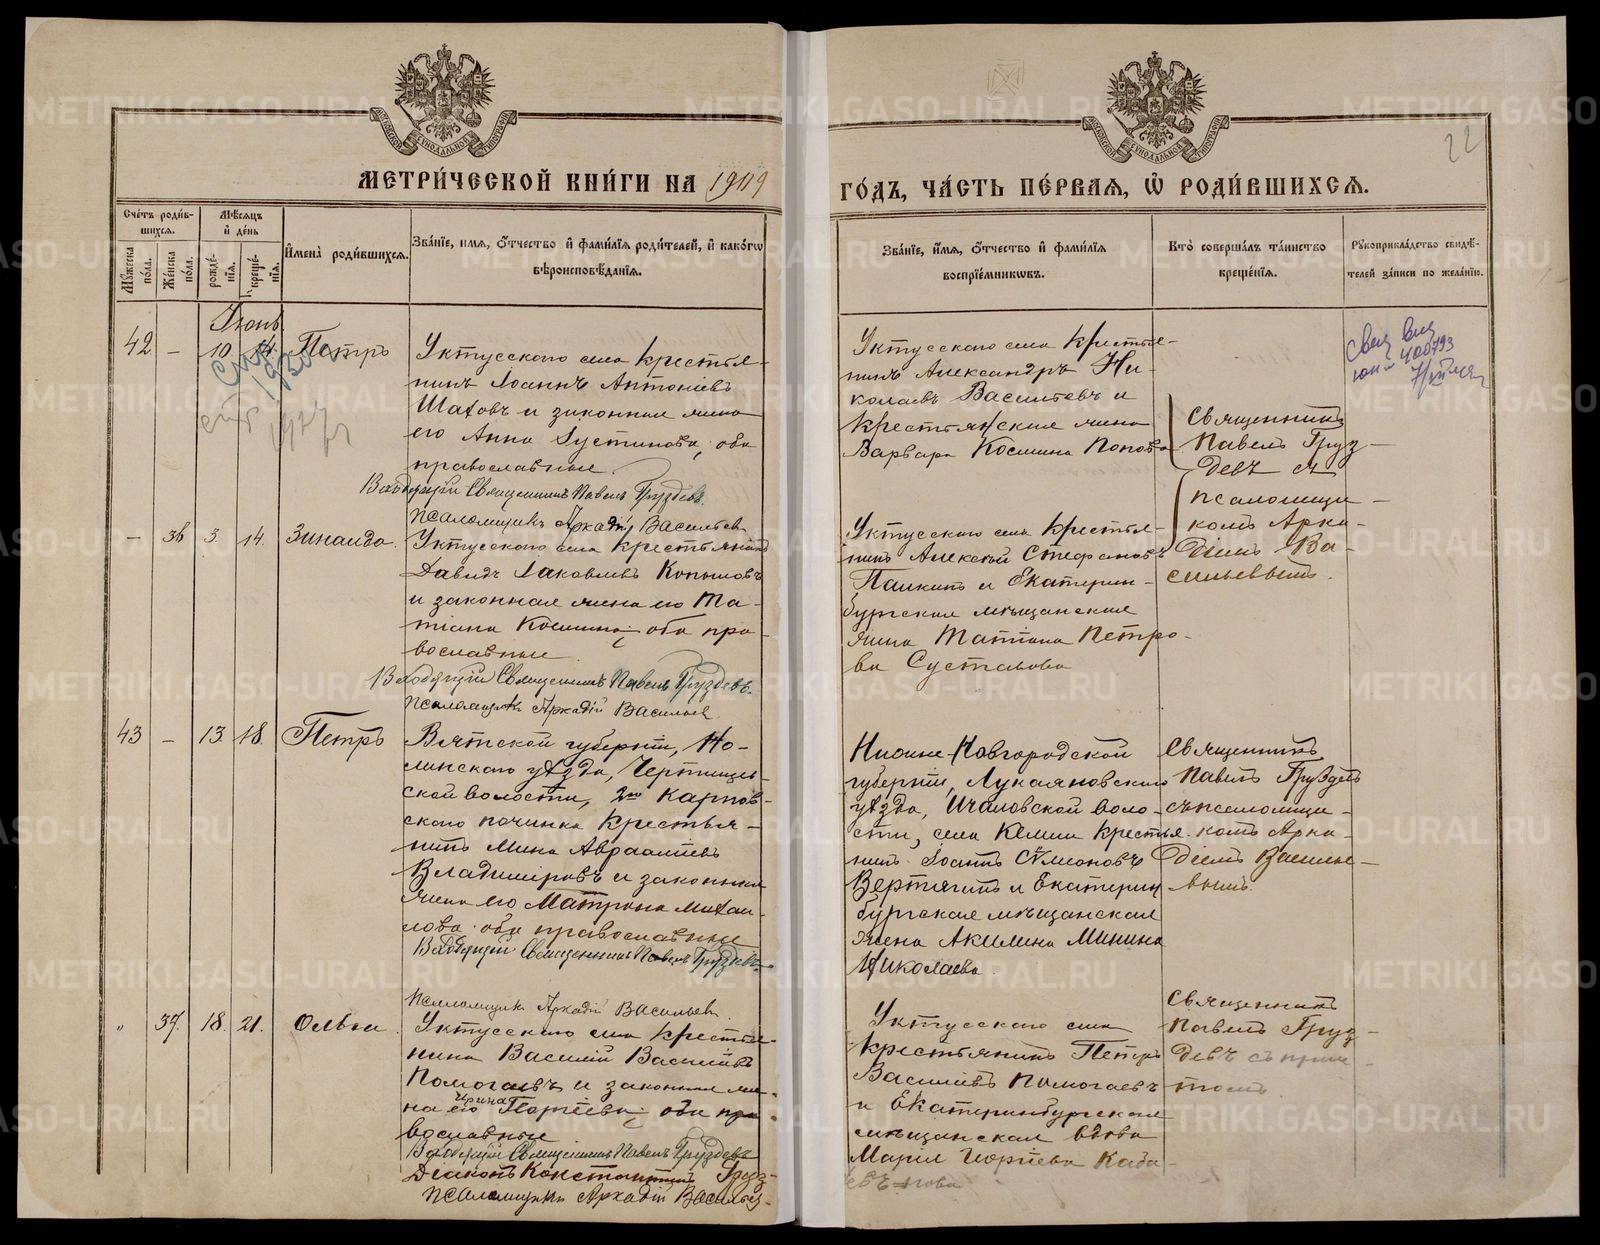 МЕТРИ́ЧЕСКОЙ КНИ́ГИ НА 1909
ГО́ДЪ, ЧА́СТЬ ПЕ́РВАЯ, Ѡ҆ РОДИ́ВШИХСЯ.
22
Сче́тъ роди́в-
шихся.
Мѣ́сяцъ
и҆ де́нь
Му́жеска по́ла.
Же́нска по́ла.
рожде́нїя.
креще́нїя.
И҆мена̀ роди́вшихся.
Зва́нїе, и҆мя, ѻ҆́тчество и҆ фами́лїя роди́телей, и҆ како́гѡ
вѣроисповѣ́данїя.
Зва́нїе, и҆́мя, ѻ҆́тчество и҆ фами́лїя
воспрїе́мниковъ.
Кто̀ соверша́лъ та́инство
креще́нїя.
Рукоприкла́дство свидѣ́-
телей за́писи по жела́нїю.
Іюнь
42 – 10 14. Петръ
Уктусскаго села крестья-
нинъ Іоаннъ Антоніевъ
Шаховъ и законная жена
его Анна Іустинова, оба
православные.
Священникъ Павелъ Груздевъ.
Псаломщикъ Аркадій Васильев
Уктусскаго села крестья-
нинъ Александръ Ни-
колаевъ Васильевъ и
крестьянская жена
Варвара Космина Попова
Священникъ
Павелъ Груз-
девъ съ
псаломщи-
комъ Арка-
діемъ Ва-
сильевымъ.
400793
– 36 3. 14. Зинаида.
Уктусскаго села крестьянинъ
Давидъ Іаковлевъ Копыловъ
и законная жена его Та-
тіана Космина, оба пра-
вославные.
Священникъ Павелъ Груздевъ.
Псаломщикъ Аркадій Васильев
Уктусскаго села крестья-
нинъ Алексѣй Стефановъ
Палкинъ и Екатерин-
бургская мѣщанская
жена Татіана Петро-
ва
43 – 13. 18. Петръ
Вятской губерніи, Но-
линскаго уѣзда,
ской волости, 2го Карпов-
скаго починка крестья-
нинъ Мина Авраамиевъ
Владимировъ и законная
жена его Матрона Михаи-
лова оба православные
Священникъ Павелъ Груздевъ
Псаломщикъ Аркадій Васильев.
Нижне-Новгородской
губерніи, Лукояновскаго
уѣзда, Ичаловской воло-
сти, села Кемли крестья-
нинъ Іоаннъ Сѵмеоновъ
Вертягинъ и Екатерин
бургская мѣщанская
жена Акилина Минина
Николаева.
Священникъ
Павелъ Груздевъ
съ псаломщи-
комъ Арка-
діемъ Василье-
вымъ.
„ 37. 18. 21. Ольга.
Уктусскаго села крестья-
нина Василій Васильевъ
Помогаевъ и законная же-
на его Ирина Георгіева, оба пра-
вославные
Священникъ Павелъ Груздевъ
Діаконъ Константинъ
Псаломщикъ Аркадій Васильев
Уктусскаго села
крестьянинъ Петръ
Василіевъ Помогаевъ
и Екатеринбургская
мѣщанская вдова
Марія Георгіева
Священникъ
Павелъ Груз-
девъ съ прич-
томъ
METRIKI.GASO-URAL.RU